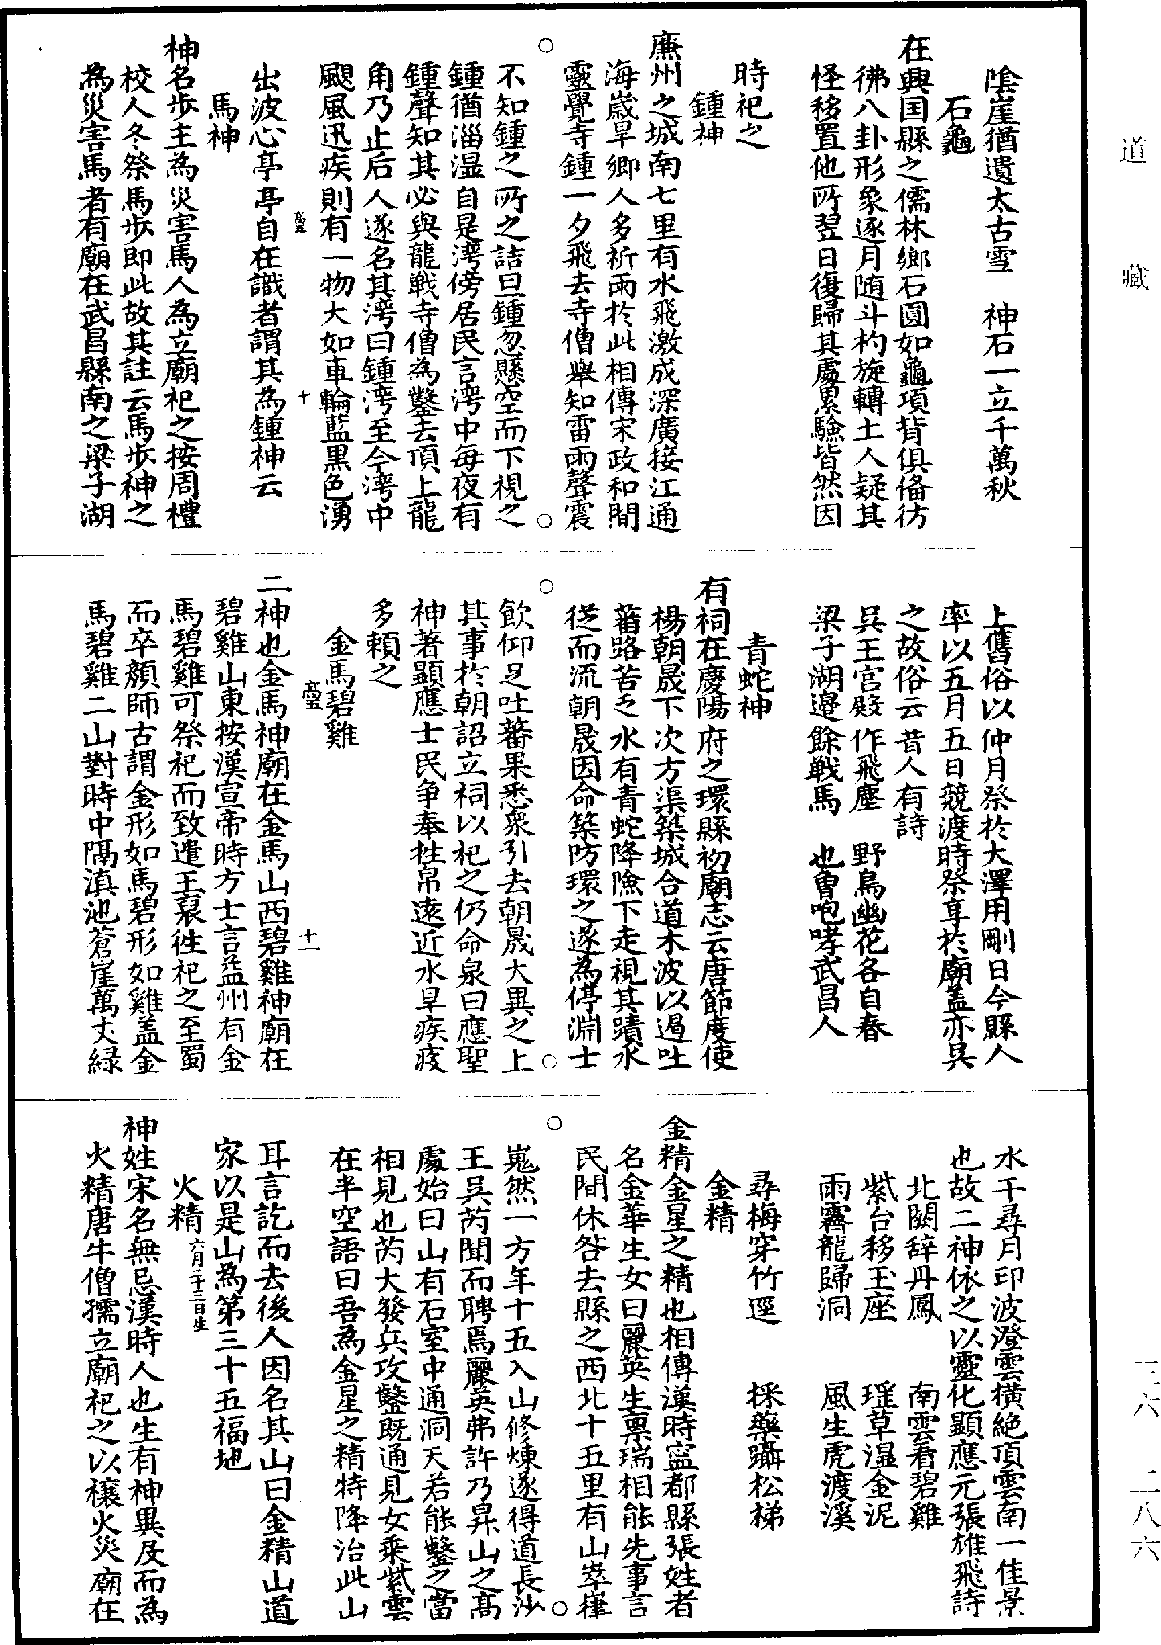 道藏
陰崖猶遺太古雪　神石一立千萬秋
石龜
在興国縣之儒林鄉石圓如龜項背俱俻彷
彿八卦形象逐月随斗杓旋轉土人疑其
怪移置他所翌日復歸其處累驗皆然因
時祀之
鍾神
廉州之城南七里有水飛激成深廣接江通
海歲旱鄉人多祈雨於此相傳宋政和間
靈覺寺鍾一夕飛去寺僧舉知雷雨聲震
不知鍾之所之詰旦鍾忽懸空而下視之
鍾猶淄湿自是湾傍居民言湾中每夜有
鍾聲知其必與龍戰寺僧為鑿去頂上龍
角乃止后人遂名其湾曰鍾湾至今湾中
颶風迅疾則有一物大如車輪藍黒色湧
出波心亭亭自在識者謂其為鍾神云
十
馬神
神名步主為災害馬人為立廟祀之按周禮
校人冬祭馬步即此故其註云馬步神之
為災害馬者有廟在武昌縣南之梁子湖
上舊俗以仲月祭於大澤用剛日今縣人
率以五月五日競渡時祭享於廟蓋亦吴
之故俗云昔人有詩
吴王宮殿作飛塵　野鳥幽花各自春
梁子湖邊餘戰馬　也曾咆哮武昌人
青蛇神
有祠在慶陽府之環縣初廟志云唐節度使
楊朝晟下次方渠築城合道木波以遏吐
蕃路苦乏水有青蛇降險下走視其蹟水
從而流朝晟因命築防環之遂為停淵士
飲仰足吐蕃果悉衆引去朝晟大異之上
其事於朝詔立祠以祀之仍命泉曰應聖
神著顯應士民争奉牲帛遠近水旱疾疫
多賴之
金馬碧雞
十一
二神也金馬神廟在金馬山西碧雞神廟在
碧雞山東按漢宣帝時方士言益州有金
馬碧雞可祭祀而致遣王襃往祀之至蜀
而卒顏師古謂金形如馬碧形如雞盖金
馬碧雞二山對時中隔滇池蒼崖萬丈緑
水千尋月印波澄雲横絶頂雲南一佳景
也故二神依之以靈化顯應元張雄飛詩
北闕辞丹鳳　南雲看碧雞
紫台移玉座　瑶草濕金泥
雨霽龍歸洞　風生虎渡溪
尋梅穿竹逕　採藥躡松梯
金精
金精金星之精也相傳漢時寧都縣張姓者
名金華生女曰麗英生禀瑞相能先事言
民間休咎去縣之西北十五里有山崒嵂
嵬然一方年十五入山修煉遂得道長沙
王吴芮聞而聘焉麗英弗許乃昇山之高
處始曰山有石室中通洞天若能鑿之當
相見也芮大發兵攻鑿既通見女乘紫雲
在半空語曰吾為金星之精特降治此山
耳言訖而去後人因名其山曰金精山道
家以是山為第三十五福地
火精六月二十三日生
神姓宋名無忌漢時人也生有神異及而為
火精唐牛僧孺立廟祀之以禳火災廟在
三六　二八六